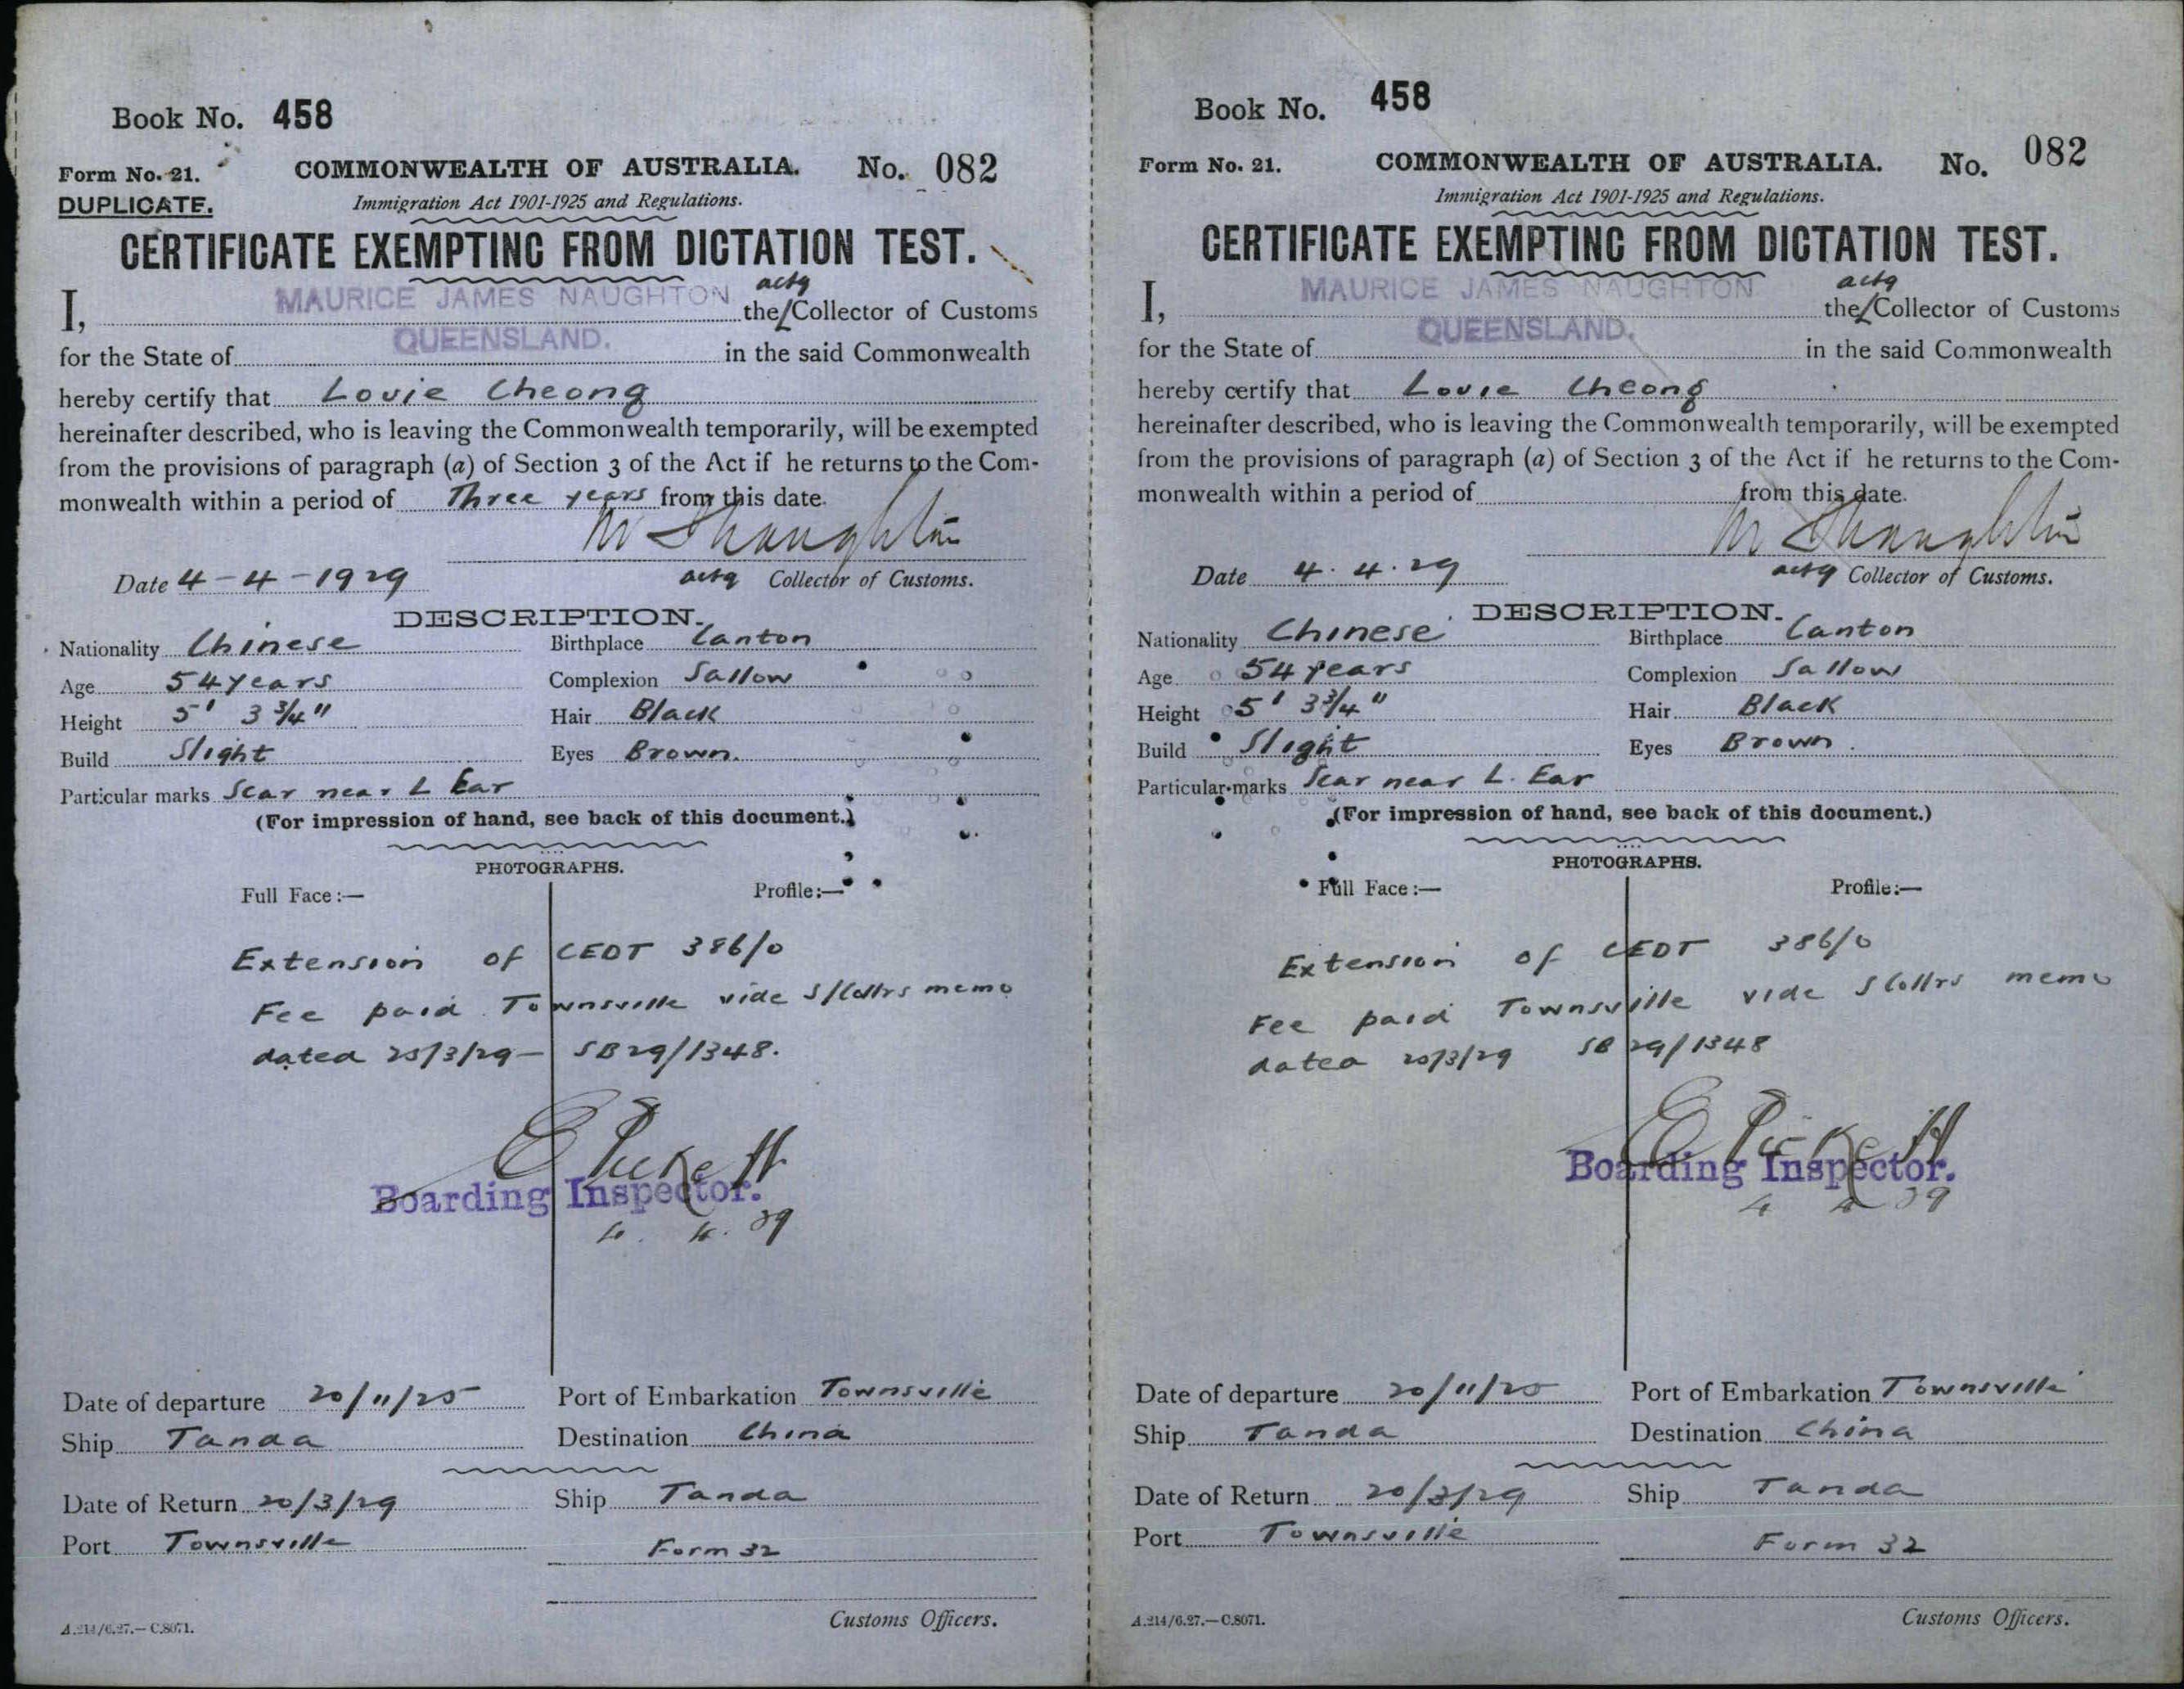 Book No. 458
Form No. 21.
COMMONWEALTH OF AUSTRALIA. No. 082
DUPLICATE.
Immigration Act 1901-1925 and Regulations.
CERTIFICATE EXEMPTING FROM DICTATION TEST.
I, MAURICE JAMES NAUGHTON the actg Collector of Customs
for the State of QUEENSLAND. in the said Commonwealth
hereby certify that Louie Cheong
hereinafter described, who is leaving the Commonwealth temporarily, will be exempted
from the provisions of paragraph (a) of Section 3 of the Act if he returns to the Com-
monwealth within a period of Three years from this date.
M J Naughton
Date 4-4-1929 actg Collector of Customs.
DESCRIPTION.
Nationality Chinese Birthplace Canton
Age 54 years Complexion Sallow
Height 5' 3 3/4" Hair Black
Build Slight Eyes Brown.
Particular marks Scar near L Ear
(For impression of hand, see back of this document.)
PHOTOGRAPHS.
Full Face:— Profile:—
Extension of CEDT 386/0
Fee paid Townsville vide memo
dated /3/29 — SB29/1348.
E Pickett
Boarding Inspector.
4. 4. 29
Date of departure 20/11/25 Port of Embarkation Townsville
Ship Tanda Destination China
Date of Return 20/3/29 Ship Tanda
Port Townsville Form 32
Customs Officers.
A.214/6.27.—C.8071.
Book No. 458
Form No. 21. COMMONWEALTH OF AUSTRALIA. No. 082
Immigration Act 1901-1925 and Regulations.
CERTIFICATE EXEMPTING FROM DICTATION TEST.
I, MAURICE JAMES NAUGHTON the actg Collector of Customs
for the State of QUEENSLAND. in the said Commonwealth
hereby certify that Louie Cheong
hereinafter described, who is leaving the Commonwealth temporarily, will be exempted
from the provisions of paragraph (a) of Section 3 of the Act if he returns to the Com-
monwealth within a period of from this date.
M J Naughton
Date 4.4.29 actg Collector of Customs.
DESCRIPTION.
Nationality Chinese Birthplace Canton
Age 54 years Complexion Sallow
Height 5' 3 3/4" Hair Black
Build Slight Eyes Brown.
Particular marks Scar near L. Ear
(For impression of hand, see back of this document.)
PHOTOGRAPHS.
Full Face:— Profile:—
Extension of CEDT 386/0
Fee paid Townsville vide memo
dated 20/3/29 SB 29/1348
E Pickett
Boarding Inspector.
4 4 29
Date of departure 20/11/25 Port of Embarkation Townsville
Ship Tanda Destination China
Date of Return 20/3/29 Ship Tanda
Port Townsville Form 32
Customs Officers.
A.214/6.27.—C.8071.